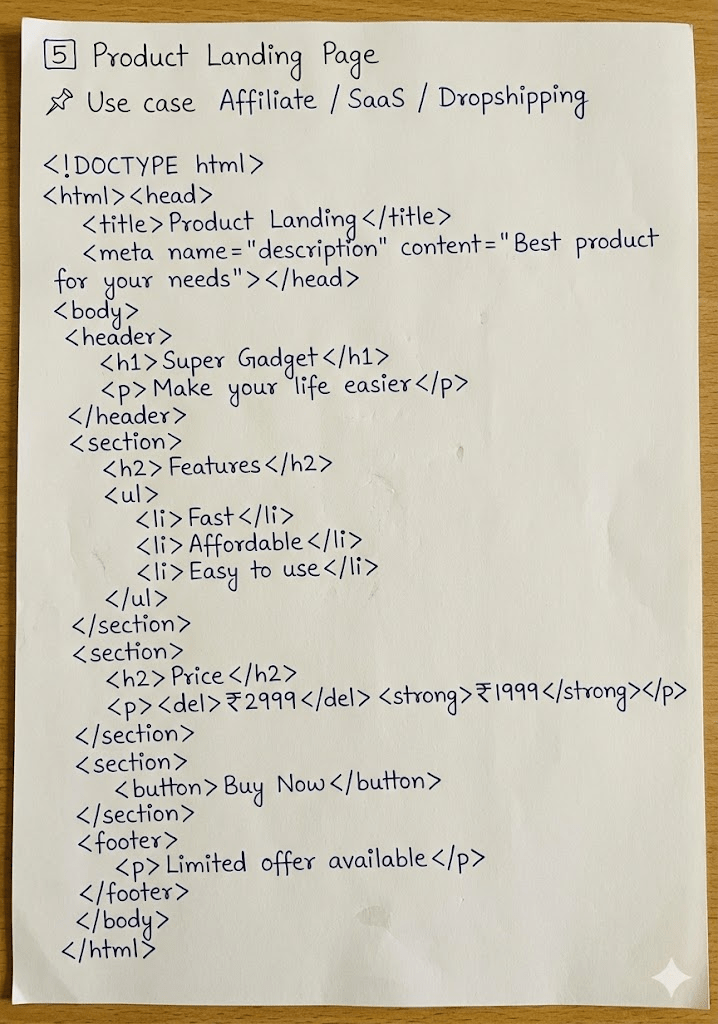 5 Product Landing Page
📌 Use case Affiliate / SaaS / Dropshipping
<!DOCTYPE html>
<html><head>
<title>Product Landing</title>
<meta name="description" content="Best product
for your needs"></head>
<body>
<header>
<h1>Super Gadget</h1>
<p>Make your life easier</p>
</header>
<section>
<h2>Features</h2>
<ul>
<li>Fast</li>
<li>Affordable</li>
<li>Easy to use</li>
</ul>
</section>
<section>
<h2>Price</h2>
<p><del>₹2999</del> <strong>₹1999</strong></p>
</section>
<section>
<button>Buy Now</button>
</section>
<footer>
<p>Limited offer available</p>
</footer>
</body>
</html>